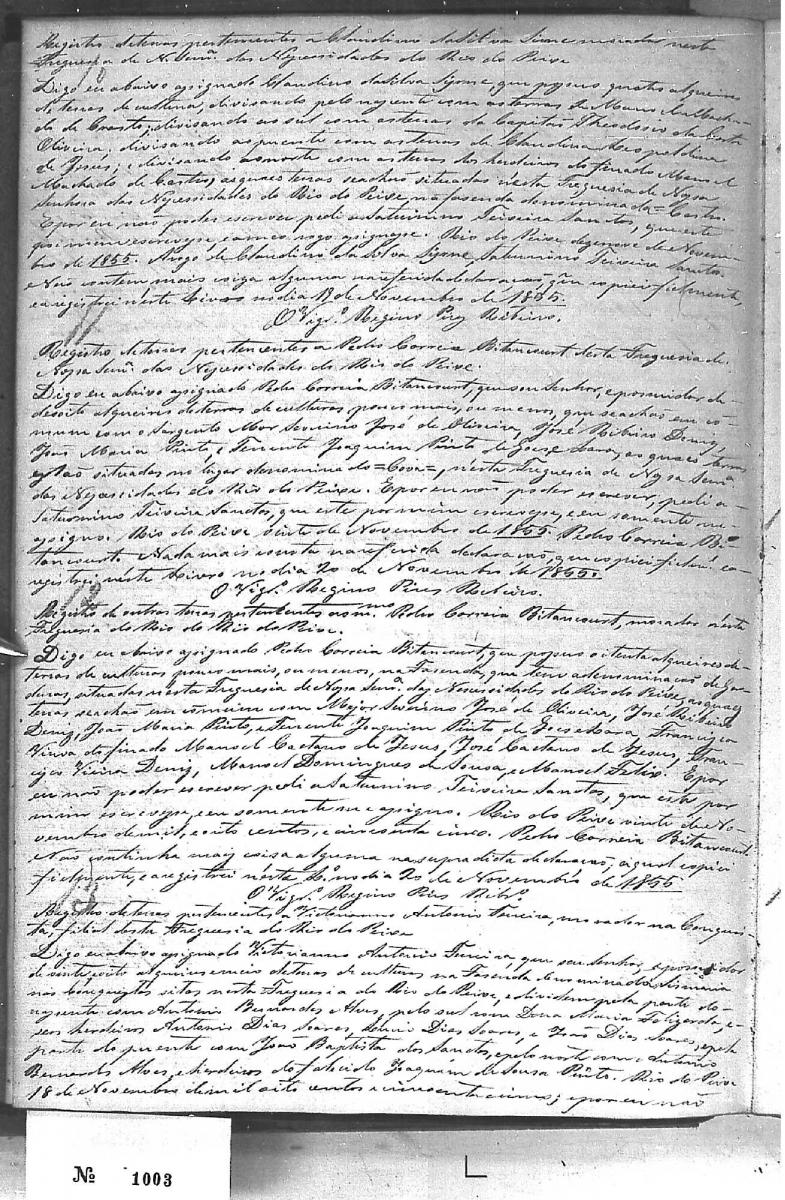 Registro de terras pertencentes a Claudino da Silva Lisme morador nesta
Freguesia de N. Senrª das Necessidades do Rio do Peixe
Digo eu abaixo assignado Claudino da Silva, que possuo quatro alqueires
de terras de cultura, divisando pelo nascente com as terras de
de Crasto, divisando ao sul com as terras do Capitão Theodosio da Costa
Oliveira, divisando ao poente com as terras de Claudina
de Jesus; e divisando ao norte com as terras dos herdeiros do finado Manoel
Machado de Castro, as quaes terras seachão situadas nésta Freguesia de Nossa
Senhora das Necessidades do Rio do Peixe, na fasenda denominada =
E por eu não poder escrever pedi a Saturnino Teixeira Santos, que este
por mim escrevesse, e a meu rogo assignasse. Rio do Peixe desenove de Novem-
bro de 1855. Arogo de Claudino da Silva Saturnino Teixeira Santos.
e Não contem mais coisa alguma na referida declaração, que copiei fielmente,
e a registrei n'éste Livro no dia de Novembro de 1855.
O Vigrº Regino Pires Ribeiro.
11
Registro de terras pertencentes a Pedro Correia Bitancourt desta Freguesia de
Nossa Senrª das Necessidades do Rio do Peixe.
Digo eu abaixo assignado Pedro Correia Bitancourt, que sou Senhor, e possuidor de
desoito alqueires de terras de culturas, pouco mais, ou menos, que seachão em co-
mum com o Sargento Mor Severino José de Oliveira, José Ribeiro Diniz,
João Maria Pinto, e Tenente Joaquim Pinto de Goes e Lara, as quaes terras
estão situadas no lugar denominado = Cova =, nésta Freguesia de Nossa Senrª
das Necessidades do Rio do Peixe. E por eu não poder escrever, pedi a
Saturnino Teixeira Santos, que este por mim escrevesse, e eu somente me
assigno. Rio do Peixe vinte de Novembro de 1855. Pedro Correia Bi-
tancourt. Nada mais consta na referida declaração, que copiei fielm. e a re-
gistrei néste Livro no dia 20 de Novembro de 1855.
O Vigrº Regino Pires Ribeiro.
12
Registro de outras terras pertencentes Pedro Correia Bitancourt, morador nésta
Freguesia do Rio do Rio do Peixe.
Digo eu abaixo assignado Pedro Correia Bitancourt, que possuo oitenta alqueires de
terras de culturas pouco mais, ou menos, na Fasenda, que tem a denominação de
situadas nésta Freguesia de Nossa Senrª das Necessidades do Rio do Peixe, as quaes
terras seachão em comum com Major Severino José de Oliveira, José Ribeiro
Diniz, João Maria Pinto, e Tenente Joaquim Pinto de Goes e Lara, Francisca
Viuva do finado Manoel Caetano de Jesus, José Caetano de Jesus, Fran
cisco Vieira Diniz, Manoel Domingues de Sousa, e Manoel Felix. E por
eu não poder escrever pedi a Saturnino Teixeira Santos, que este por
mim escrevesse, e eu somente me assigno. Rio do Peixe vinte de No-
vembro de mil, e oito centos, e cincoenta cinco. Pedro Correia Bitancourt.
Não continha mais coisa alguma na supradicta declaração, a qual copiei
fielmente, e a registrei neste Lº. no dia 20 de Novembro de 1855
O Vigrº Regino Pires Ribrº
13
Registro de terras pertencentes a Victorianno Antonio Ferreira, morador na Conquis-
ta, filial desta Freguesia do Rio do Peixe
Digo eu abaixo assignado Victorianno Antonio Ferreira, que sou Senhor, e possuidor
de vinte e oito alqueires e meio de terras de culturas na Fasenda denominada Sismaria
nas Conquistas sitas nesta Freguesia do Rio do Peixe, e dividem pela parte do
nascente com Antonio Bernardes e Alves, pelo sul com Dona Maria Felizarda, e
seos herdeiros Antonio Dias Soares, Dias Soares, e João Dias Soares, e pela
parte do puente com João Baptista dos Santos, e pelo norte com Antonio
Bernardes Alves, e herdeiros do falecido Joaquim de Sousa Pinto. Rio do Peixe
18 de Novembro de mil oito centos e cincoenta e cinco; e por eu não
Nº 1003